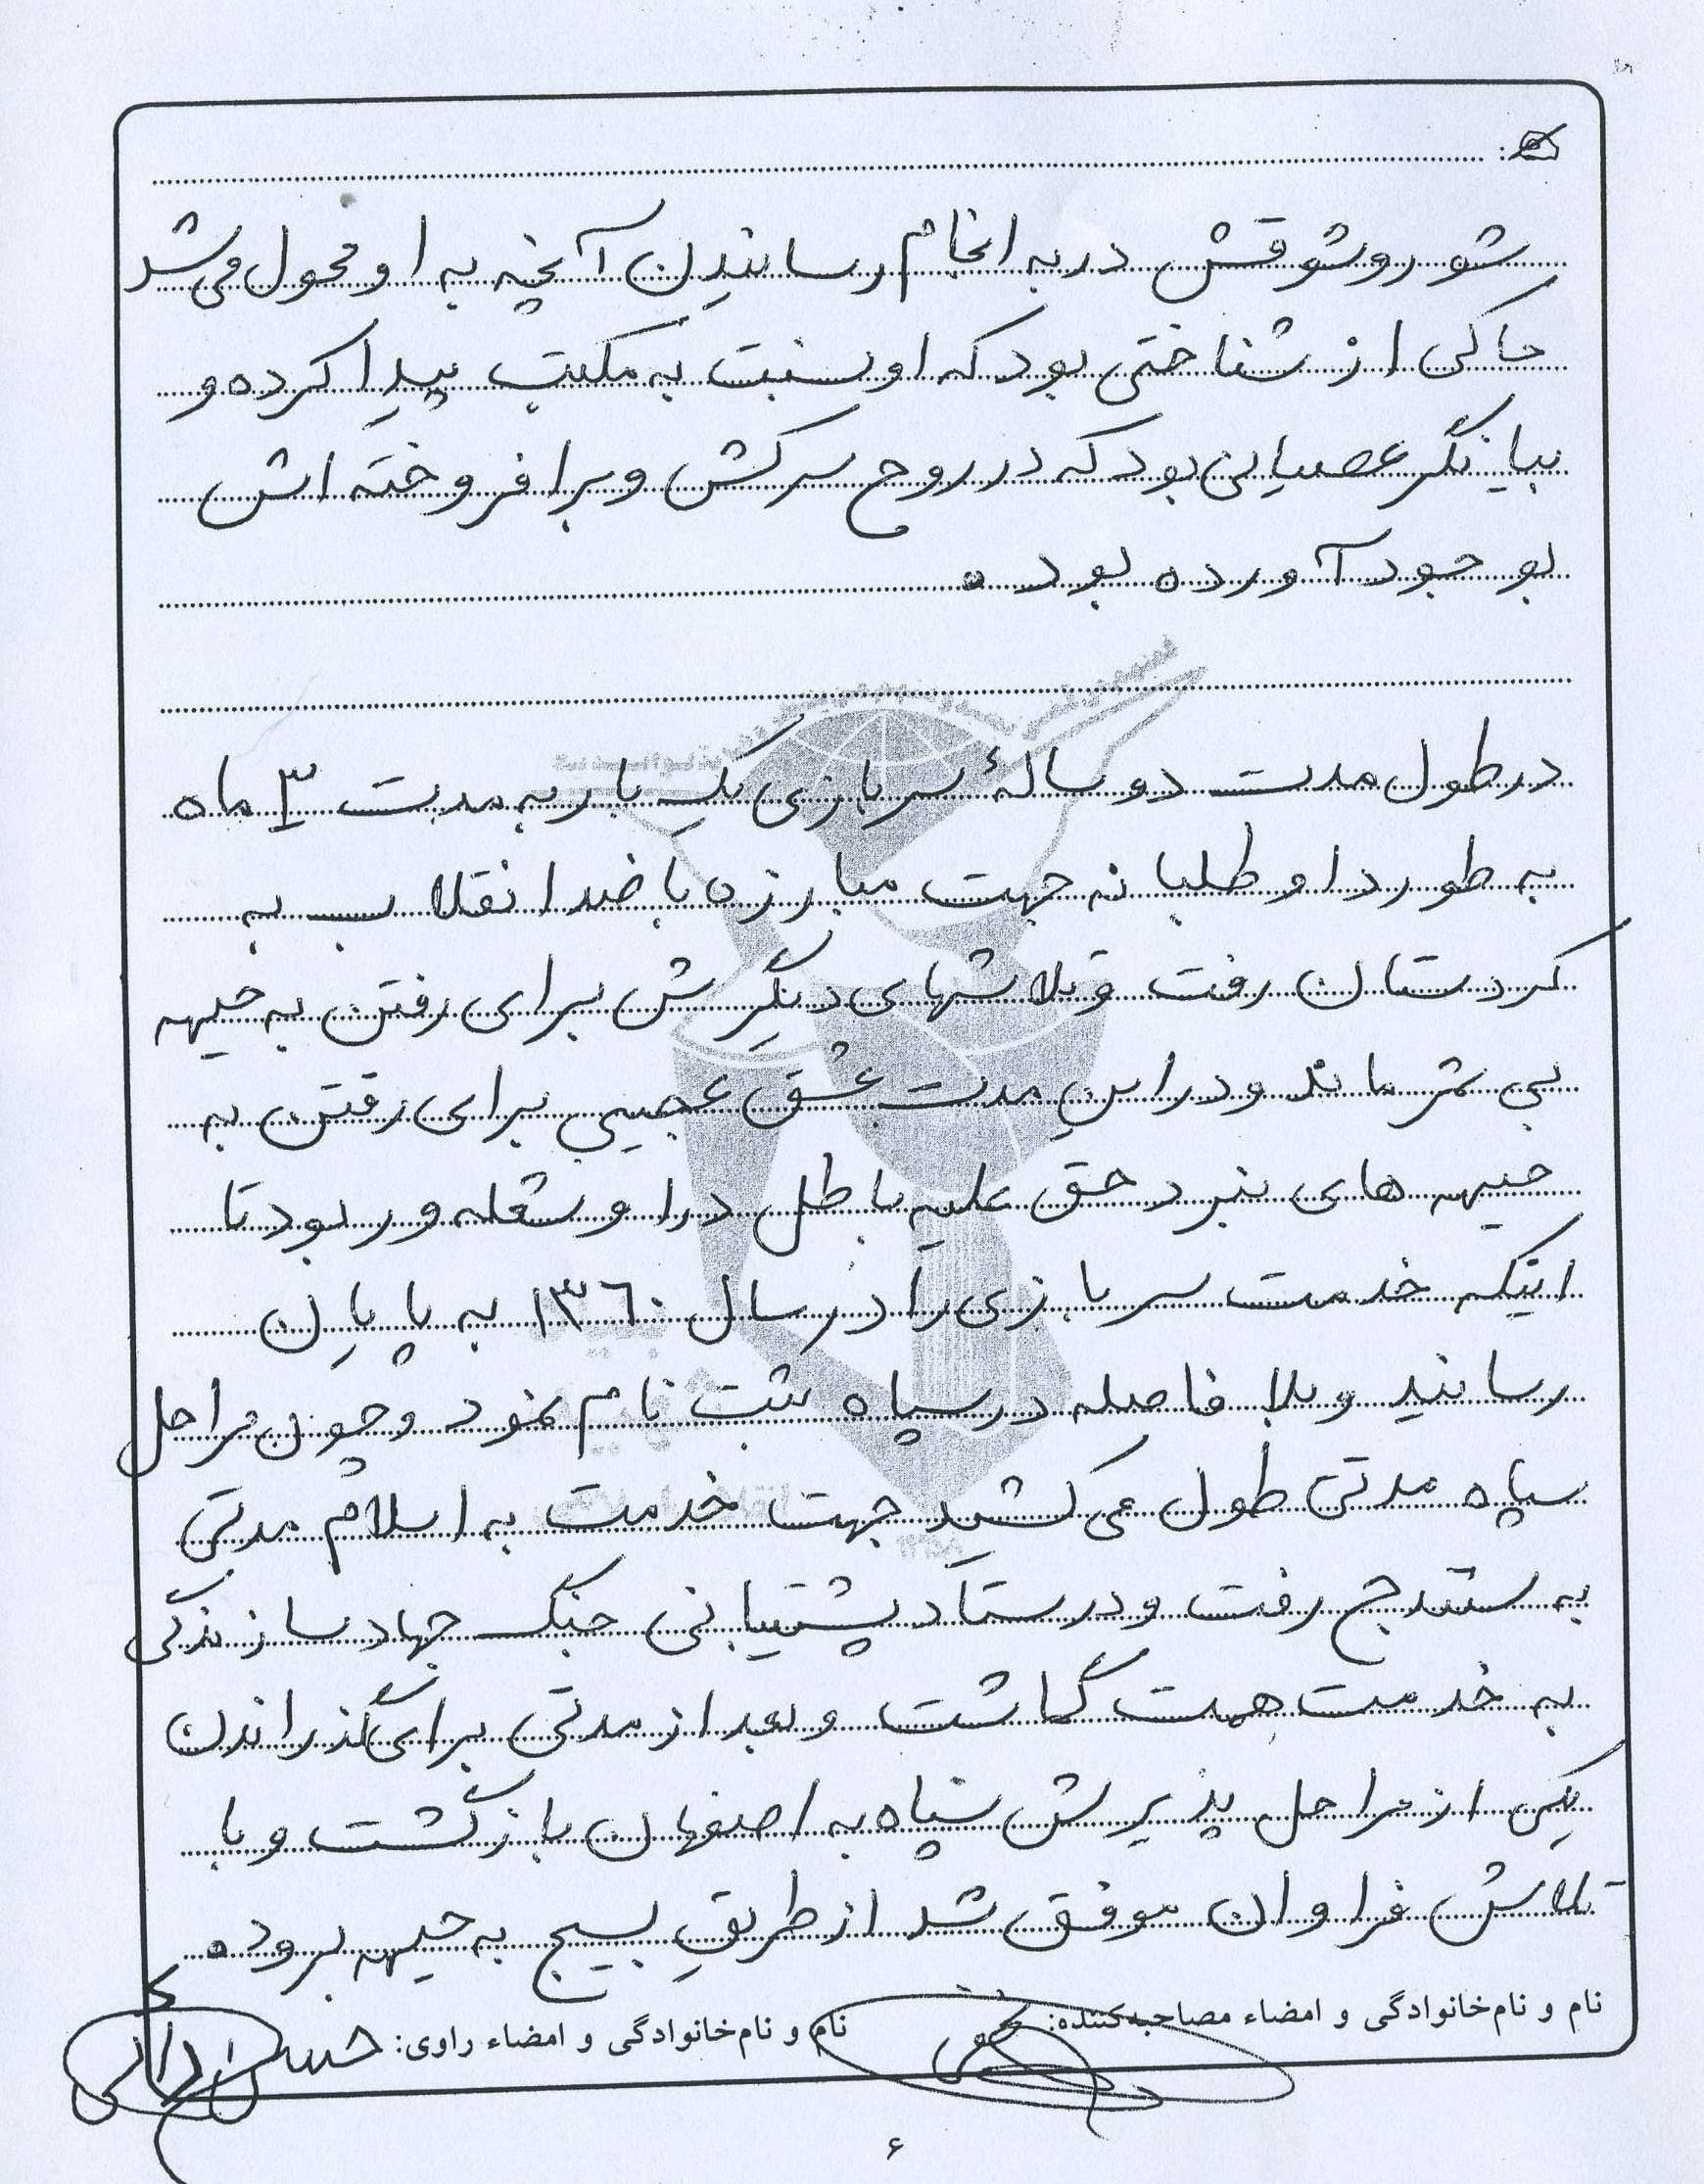 شور و شوقش در به انجام رسانیدن آنچه به او محول می‌شد
حاکی از شناختی بود که او نسبت به مکتب پیدا کرده و
بیانگر عصیانی بود که در روح سرکش و برافروخته اش
بوجود آورده بود.
در طول مدت دو سالهٔ سربازی یک بار به مدت ۳ ماه
به طور داوطلبانه جهت مبارزه با ضد انقلاب به
کردستان رفت و تلاشهای دیگرش برای رفتن به جبهه
بی ثمر ماند و در این مدت عشق عجیبی برای رفتن به
جبهه های نبرد حق علیه باطل در او شعله ور بود تا
اینکه خدمت سربازی را در سال ۱۳۶۰ به پایان
رسانید و بلا فاصله در سپاه ثبت نام نمود و چون مراحل
سپاه مدتی طول می کشید جهت خدمت به اسلام مدتی
به سنندج رفت و در ستاد پشتیبانی جنگ جهاد سازندگی
به خدمت همت گماشت و بعد از مدتی برای گذراندن
یکی از مراحل پذیرش سپاه به اصفهان بازگشت و با
تلاش فراوان موفق شد از طریق بسیج به جبهه برود.
نام و نام‌خانوادگی و امضاء مصاحبه‌کننده:
نام و نام‌خانوادگی و امضاء راوی: حسن
۶